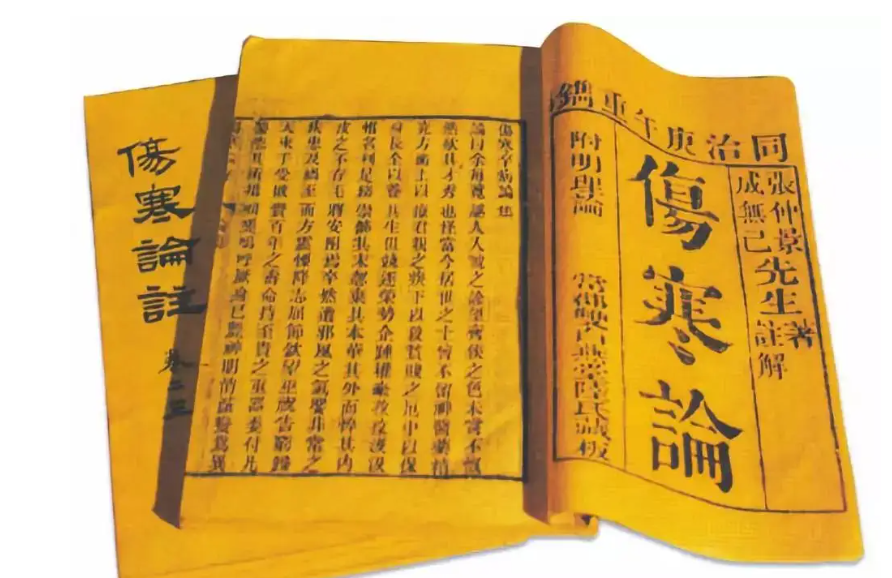 同治庚午重鐫
張仲景先生著
成無己 註解
傷寒論
附明理論 常郡雙白燕堂陸氏藏板
傷寒卒病論集
論曰余每覽越人入虢之診望齊侯之色未嘗不慨
然歎其才秀也怪當今居世之士曾不留神醫藥精
究方術上以療君親之疾下以救貧賤之厄中以保
身長全以養其生但競逐榮勢企踵權豪孜孜汲汲
惟名利是務崇飾其末忽棄其本華其外而悴其內
皮之不存毛將安附焉卒然遭邪風之氣嬰非常之
疾患及禍至而方震慄降志屈節欽望巫祝告窮歸
天束手受敗賚百年之壽命持至貴之重器委付凡
醫恣其所措咄嗟嗚呼厥身已斃神明消滅變為異
傷寒論註
卷二三